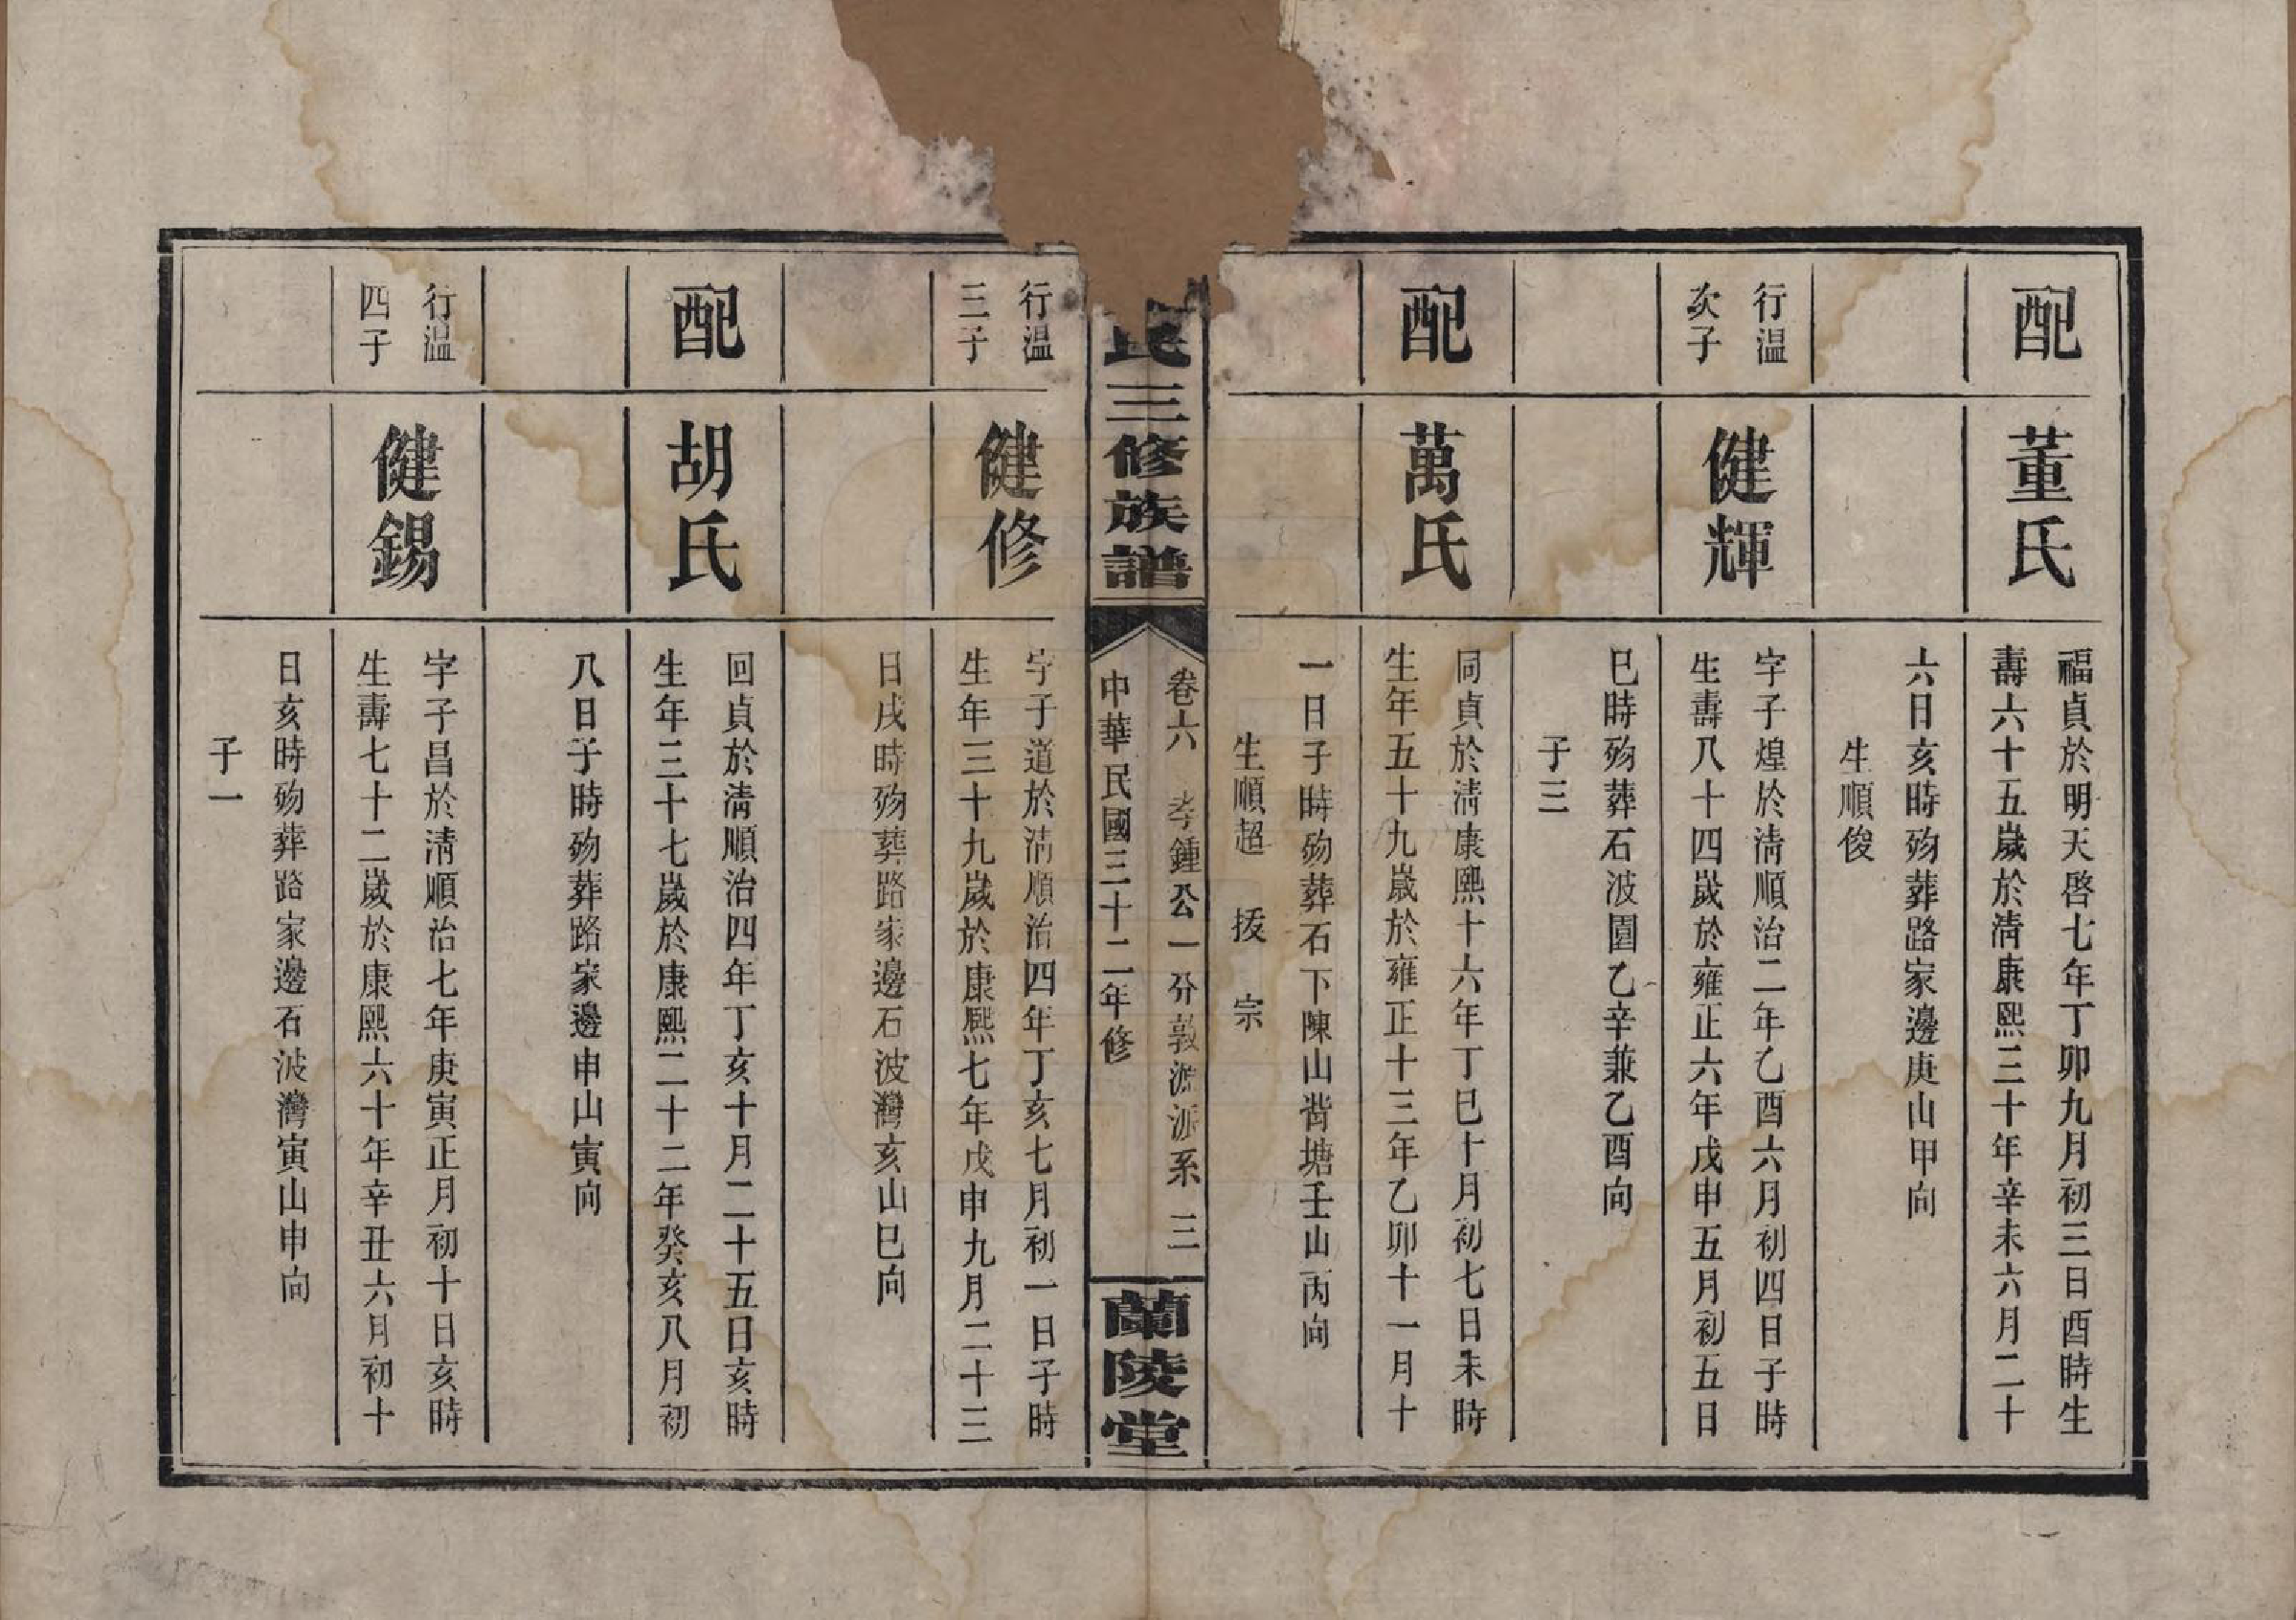 配
董氏
福貞於明天啓七年丁卯九月初三日酉時生
壽六十五嵗於淸康熙三十年辛未六月二十
六日亥時歿葬路家邊庚山甲向
生順俊
行溫
次子
健輝
字子煌於淸順治二年乙酉六月初四日子時
生壽八十四嵗於雍正六年戊申五月初五日
巳時歿葬石波園乙辛兼乙酉向
子三
配
萬氏
同貞於淸康熙十六年丁巳十月初七日未時
生年五十九嵗於雍正十三年乙卯十一月十
一日子時歿葬石下陳山背塘壬山丙向
生順超 授 宗
氏三修族譜
卷六 孝鍾公一分敦源派系 三
中華民國三十二年修
蘭陵堂
行溫
三子
健修
字子道於淸順治四年丁亥七月初一日子時
生年三十九嵗於康熙七年戊申九月二十三
日戌時歿葬路家邊石波灣亥山巳向
配
胡氏
回貞於淸順治四年丁亥十月二十五日亥時
生年三十七嵗於康熙二十二年癸亥八月初
八日子時歿葬路家邊申山寅向
行溫
四子
健錫
字子昌於淸順治七年庚寅正月初十日亥時
生壽七十二嵗於康熙六十年辛丑六月初十
日亥時歿葬路家邊石波灣寅山申向
子一